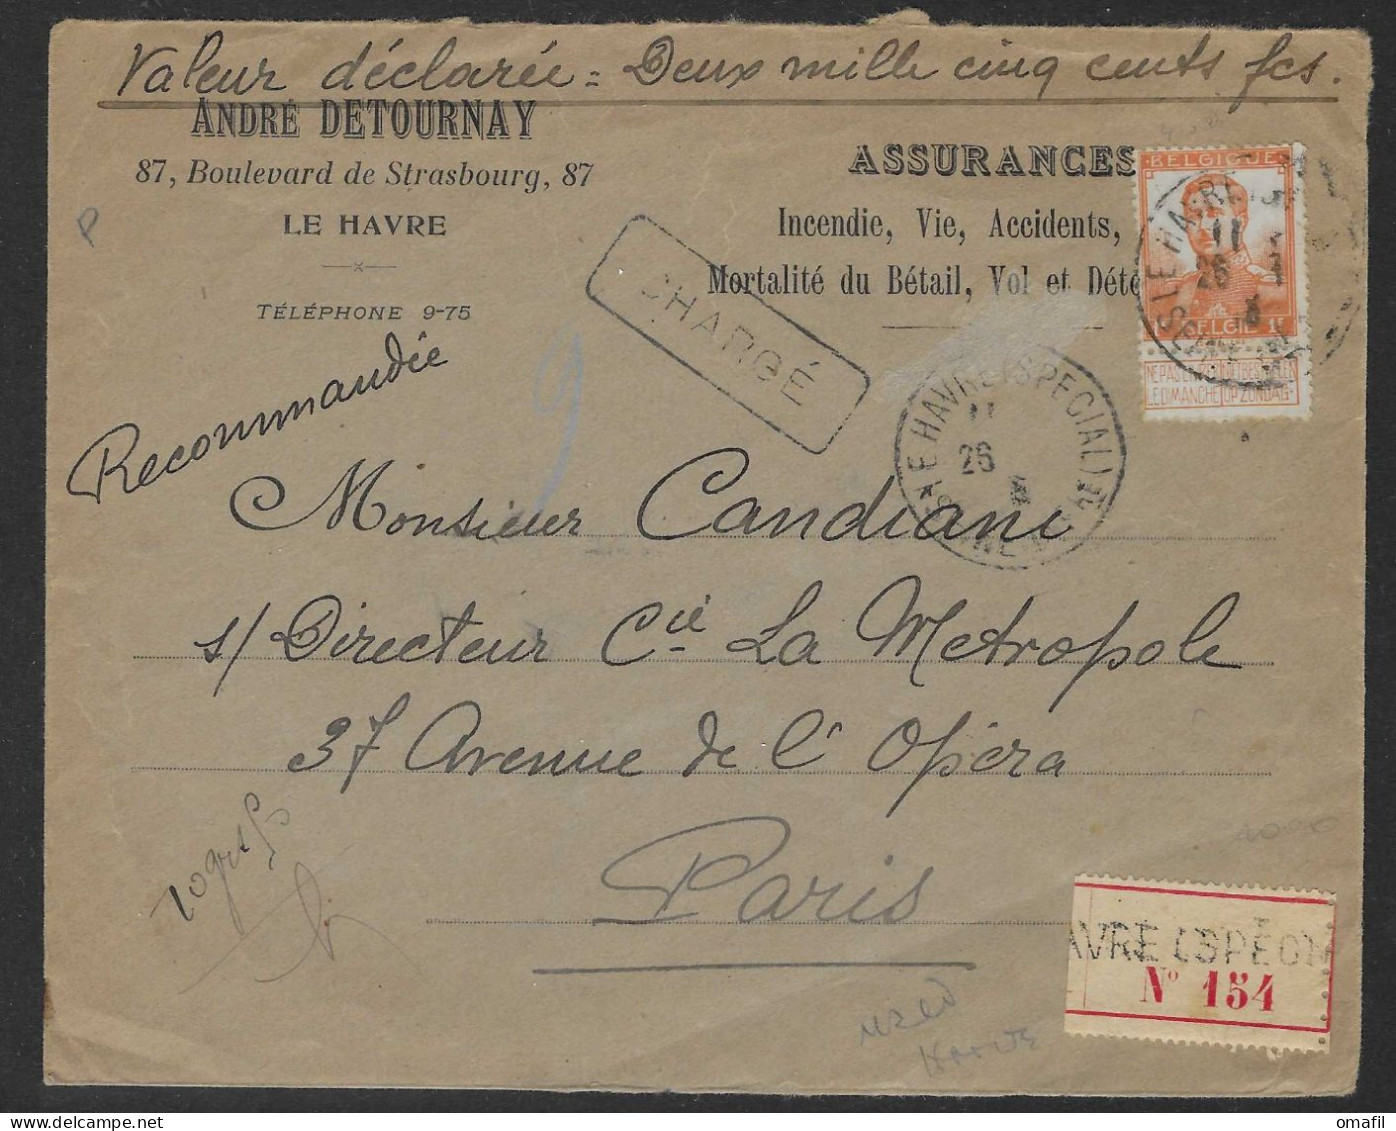 Valeur déclarée = Deux mille cinq cents fcs.
ANDRÉ DETOURNAY
87, Boulevard de Strasbourg, 87
LE HAVRE
TÉLÉPHONE 9-75
ASSURANCES
Incendie, Vie, Accidents,
Mortalité du Bétail, Vol et Dété
BELGIQUE
BELGIË 1F
NE PAS LIVRER
LE DIMANCHE
OP ZONDAG
LE HAVRE (SPECIAL)
11
26
CHARGÉ
LE HAVRE (SPECIAL)
11
26
Recommandée
Monsieur Candiani
s/ Directeur Cie La Metropole
37 Avenue de l'Opéra
Paris
AVRE (SPÉCI
N° 154
omafil